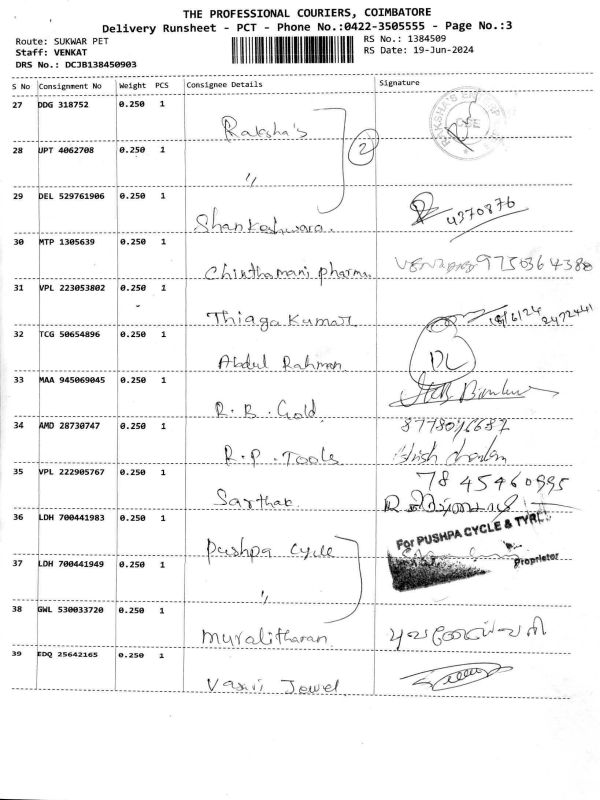 THE PROFESSIONAL COURIERS, COIMBATORE
Delivery Runsheet - PCT - Phone No.:0422-3505555 - Page No.:3
Route: SUKWAR PET
RS No.: 1384509
Staff: VENKAT
RS Date: 19-Jun-2024
DRS No.: DCJB138450903
S No Consignment No Weight PCS Consignee Details Signature
27 DDG 318752 0.250 1 Raksha's
28 UPT 4062708 0.250 1 〃 2
29 DEL 529761906 0.250 1 Shankeshwara 4370876
30 MTP 1305639 0.250 1 Chinthamani pharma 9750364388
31 VPL 223053802 0.250 1 Thiaga Kumar 18/6/24
32 TCG 50654896 0.250 1 Abdul Rahman DL
33 MAA 945069045 0.250 1 R.B. Gold
34 AMD 28730747 0.250 1 R.P. Tools
35 VPL 222905767 0.250 1 Sarthak 7845460995
36 LDH 700441983 0.250 1 Pushpa Cycle For PUSHPA CYCLE & TYRE
37 LDH 700441949 0.250 1 〃 Proprietor
38 GWL 530033720 0.250 1 Muralitharan
39 EDQ 25642165 0.250 1 Jewel